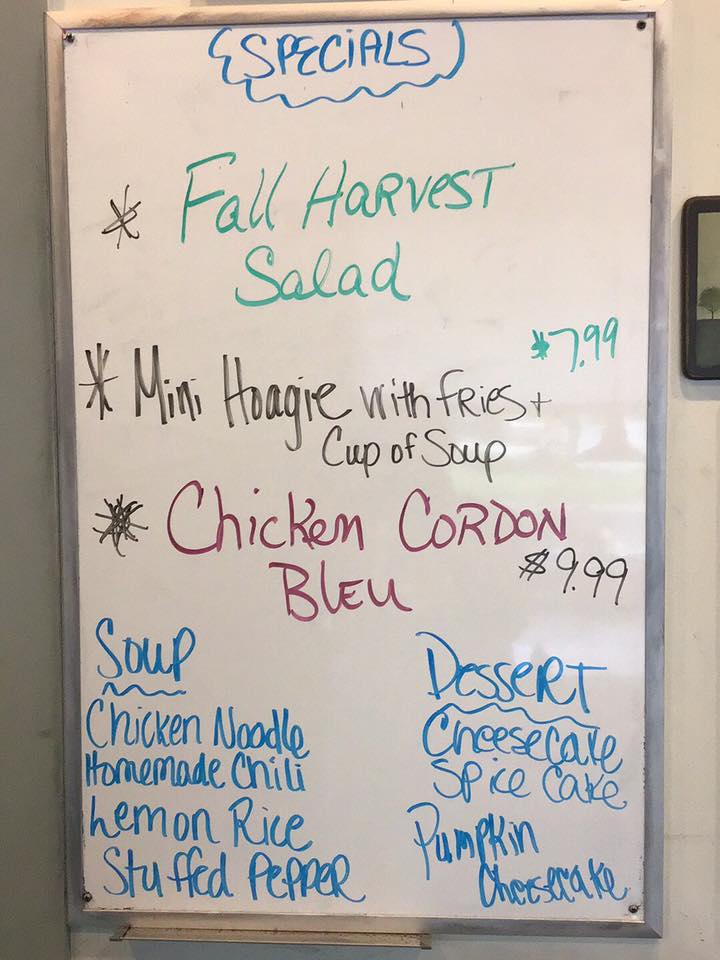 {SPECIALS}
* Fall HARVEST
Salad
$7.99
* Mini Hoagie with fRies +
Cup of Soup
* Chicken CORDON
BLEU
$9.99
Soup
Chicken Noodle
Homemade Chili
Lemon Rice
Stuffed PePPER
DesseRT
Cheesecake
Spice Cake
Pumpkin
Cheesecake